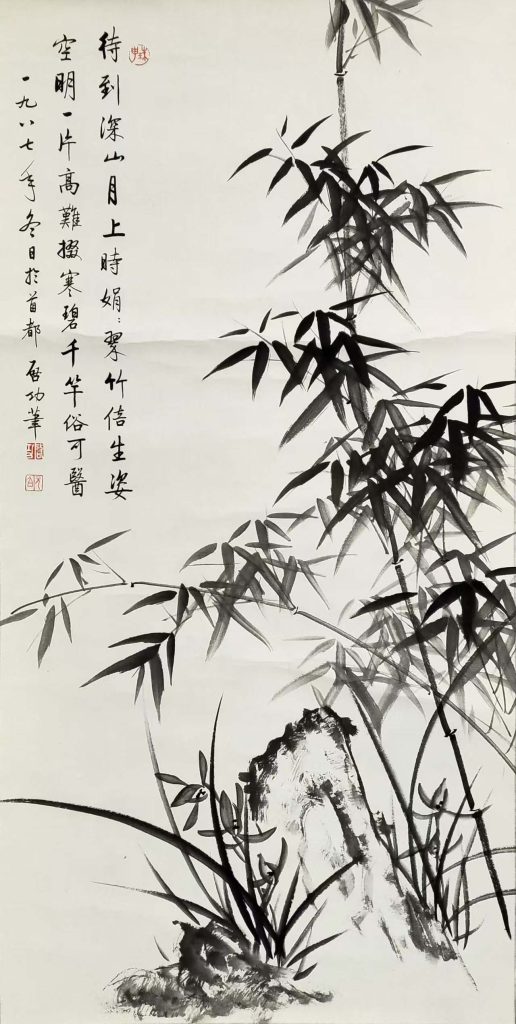 待到深山月上時娟〻翠竹倍生姿
空明一片高難掇寒碧千竿俗可醫
一九八七年冬日於首都啟功筆